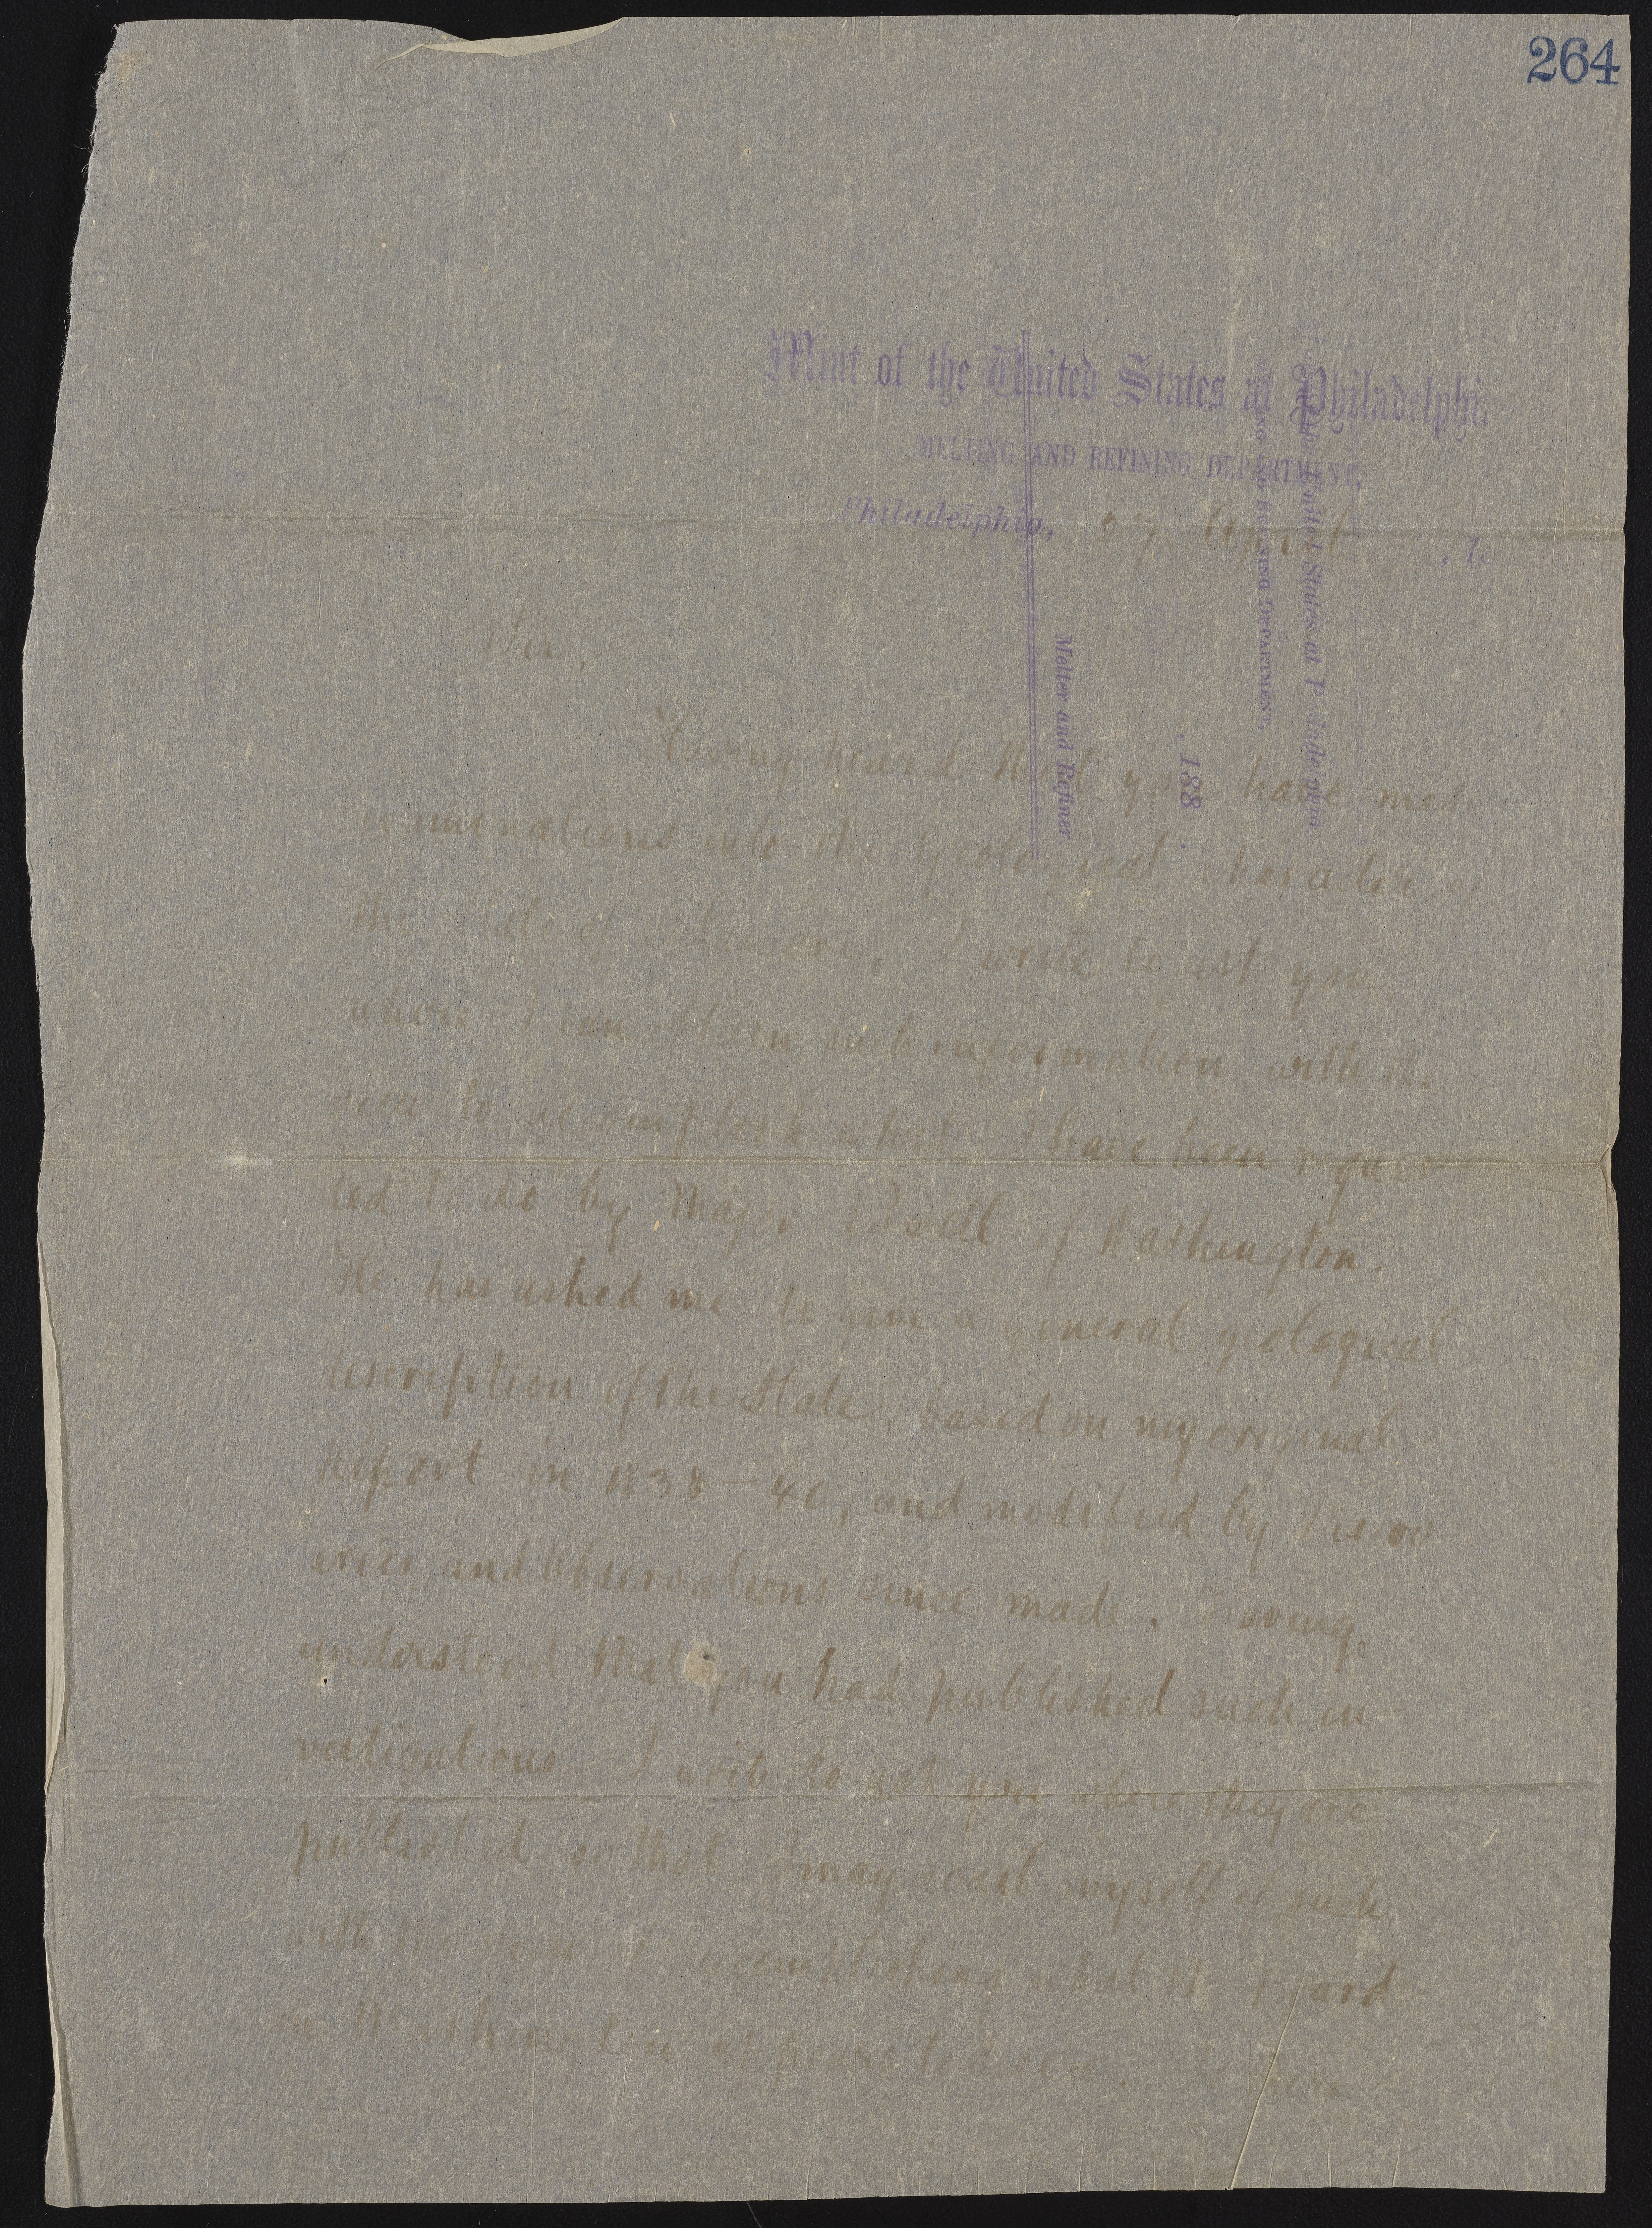 264
Mint of the United States at Philadelphi
MELTING AND REFINING DEPARTMENT,
Philadelphia, 27 April , 18
United States at Philadelphia
REFINING DEPARTMENT,
, 188 .
Melter and Refiner.
Sir,
Having heard that you have made
into the Geological character of
the State of Delaware, I write to ask you
where I can obtain such information with the
view to accomplish what I have been reques
ted to do by Major Powell of Washington.
He has asked me to give a general geological
description of the State, based on my original
Report in 1838–40, and modified by discov
eries and observations since made. Having
understood that you had published such in
vestigations I write to ask you where they are
published so that I may avail myself of such
with the view of accomplishing what the Board
in Washington